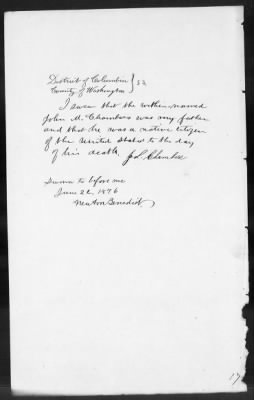 District of Columbia } ss
County of Washington
I swear that the within-named
John M. Chambers was my father
and that he was a native citizen
of the United States to the day
of his death. J L Chambers
Sworn to before me
June 22, 1876
Newton Benedict
17